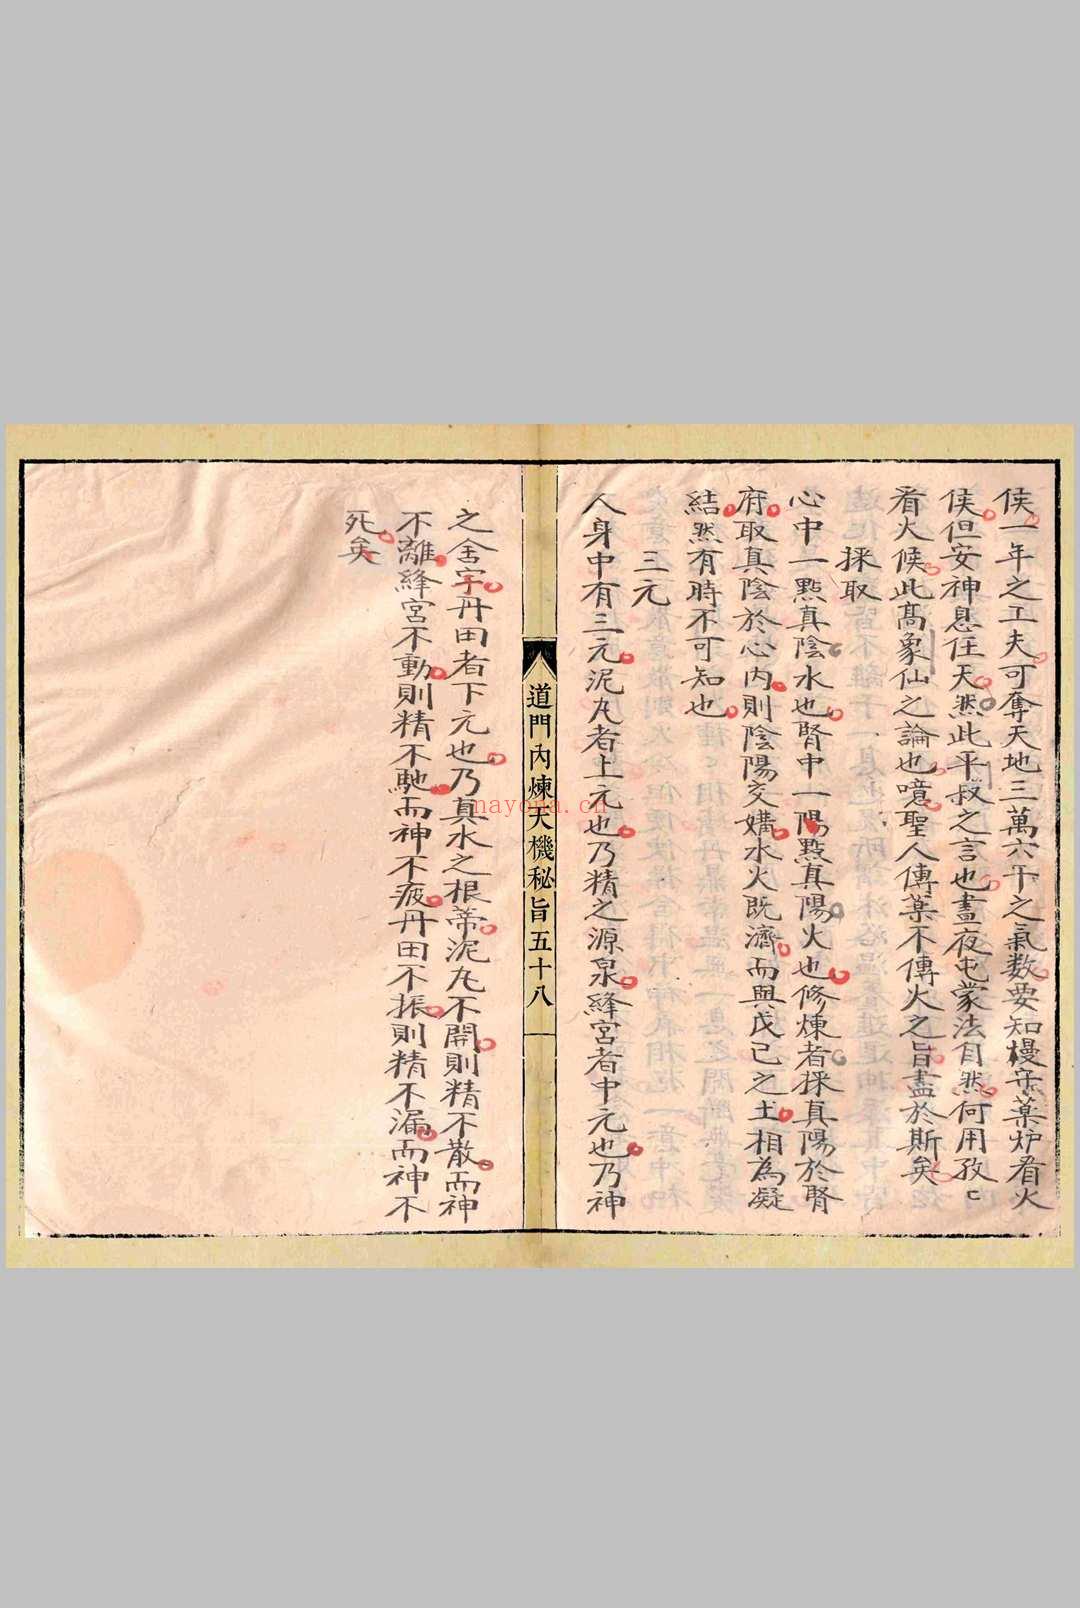 侯一年之工夫可奪天地三萬六千之氣数要知櫻來藥炉看火
侯但安神息任天然此平叔之言也晝夜屯蒙法自然何用孜〻
看火候此髙象仙之論也噫聖人傳藥不傳火之旨盡於斯矣
採取
心中一點真陰水也腎中一陽點真陽火也修煉者採真陽於腎
府取真陰於心內則陰陽交媾水火既濟而與戊己之土相為凝
結然有時不可知也
三元
人身中有三元泥丸者上元也乃精之源泉絳宮者中元也乃神
道門內煉天機秘旨五十八
之舍字丹田者下元也乃真水之根蒂泥丸不開則精不散而神
不離絳宮不動則精不馳而神不疲丹田不振則精不漏而神不
死矣
nayona.cn